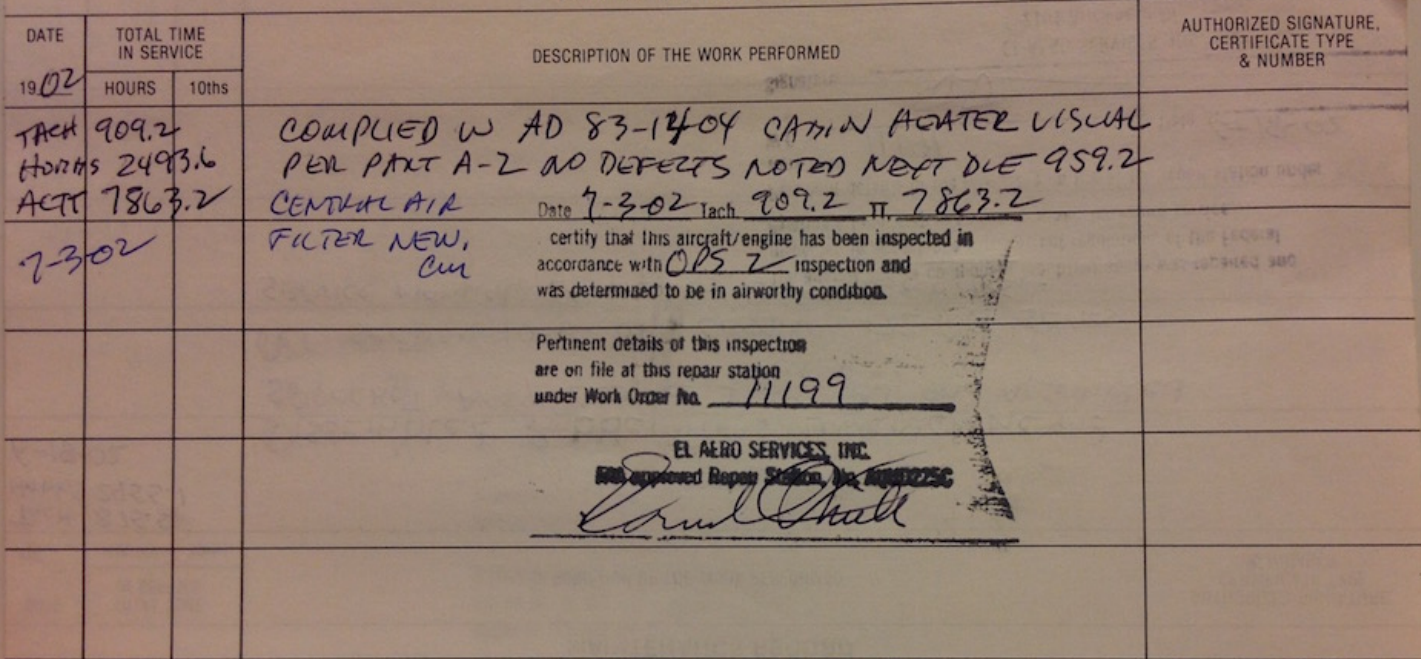 DATE
TOTAL TIME
IN SERVICE
DESCRIPTION OF THE WORK PERFORMED
AUTHORIZED SIGNATURE,
CERTIFICATE TYPE
& NUMBER
1902 HOURS 10ths
TACH 909.2 COMPLIED W AD 83-1404 CABIN HEATER VISUAL
HOBBS 2493.6 PER PART A-2 NO DEFECTS NOTED NEXT DUE 959.2
ACTT 7863.2 CENTRAL AIR Date 7-3-02 Tach. 909.2 TT. 7863.2
7-3-02 FILTER NEW. certify that this aircraft/engine has been inspected in
accordance with OPS 2 inspection and
was determined to be in airworthy condition.
Pertinent details of this inspection
are on file at this repair station
under Work Order No. 11199
EL AERO SERVICES, INC.
approved Repair Station, No.